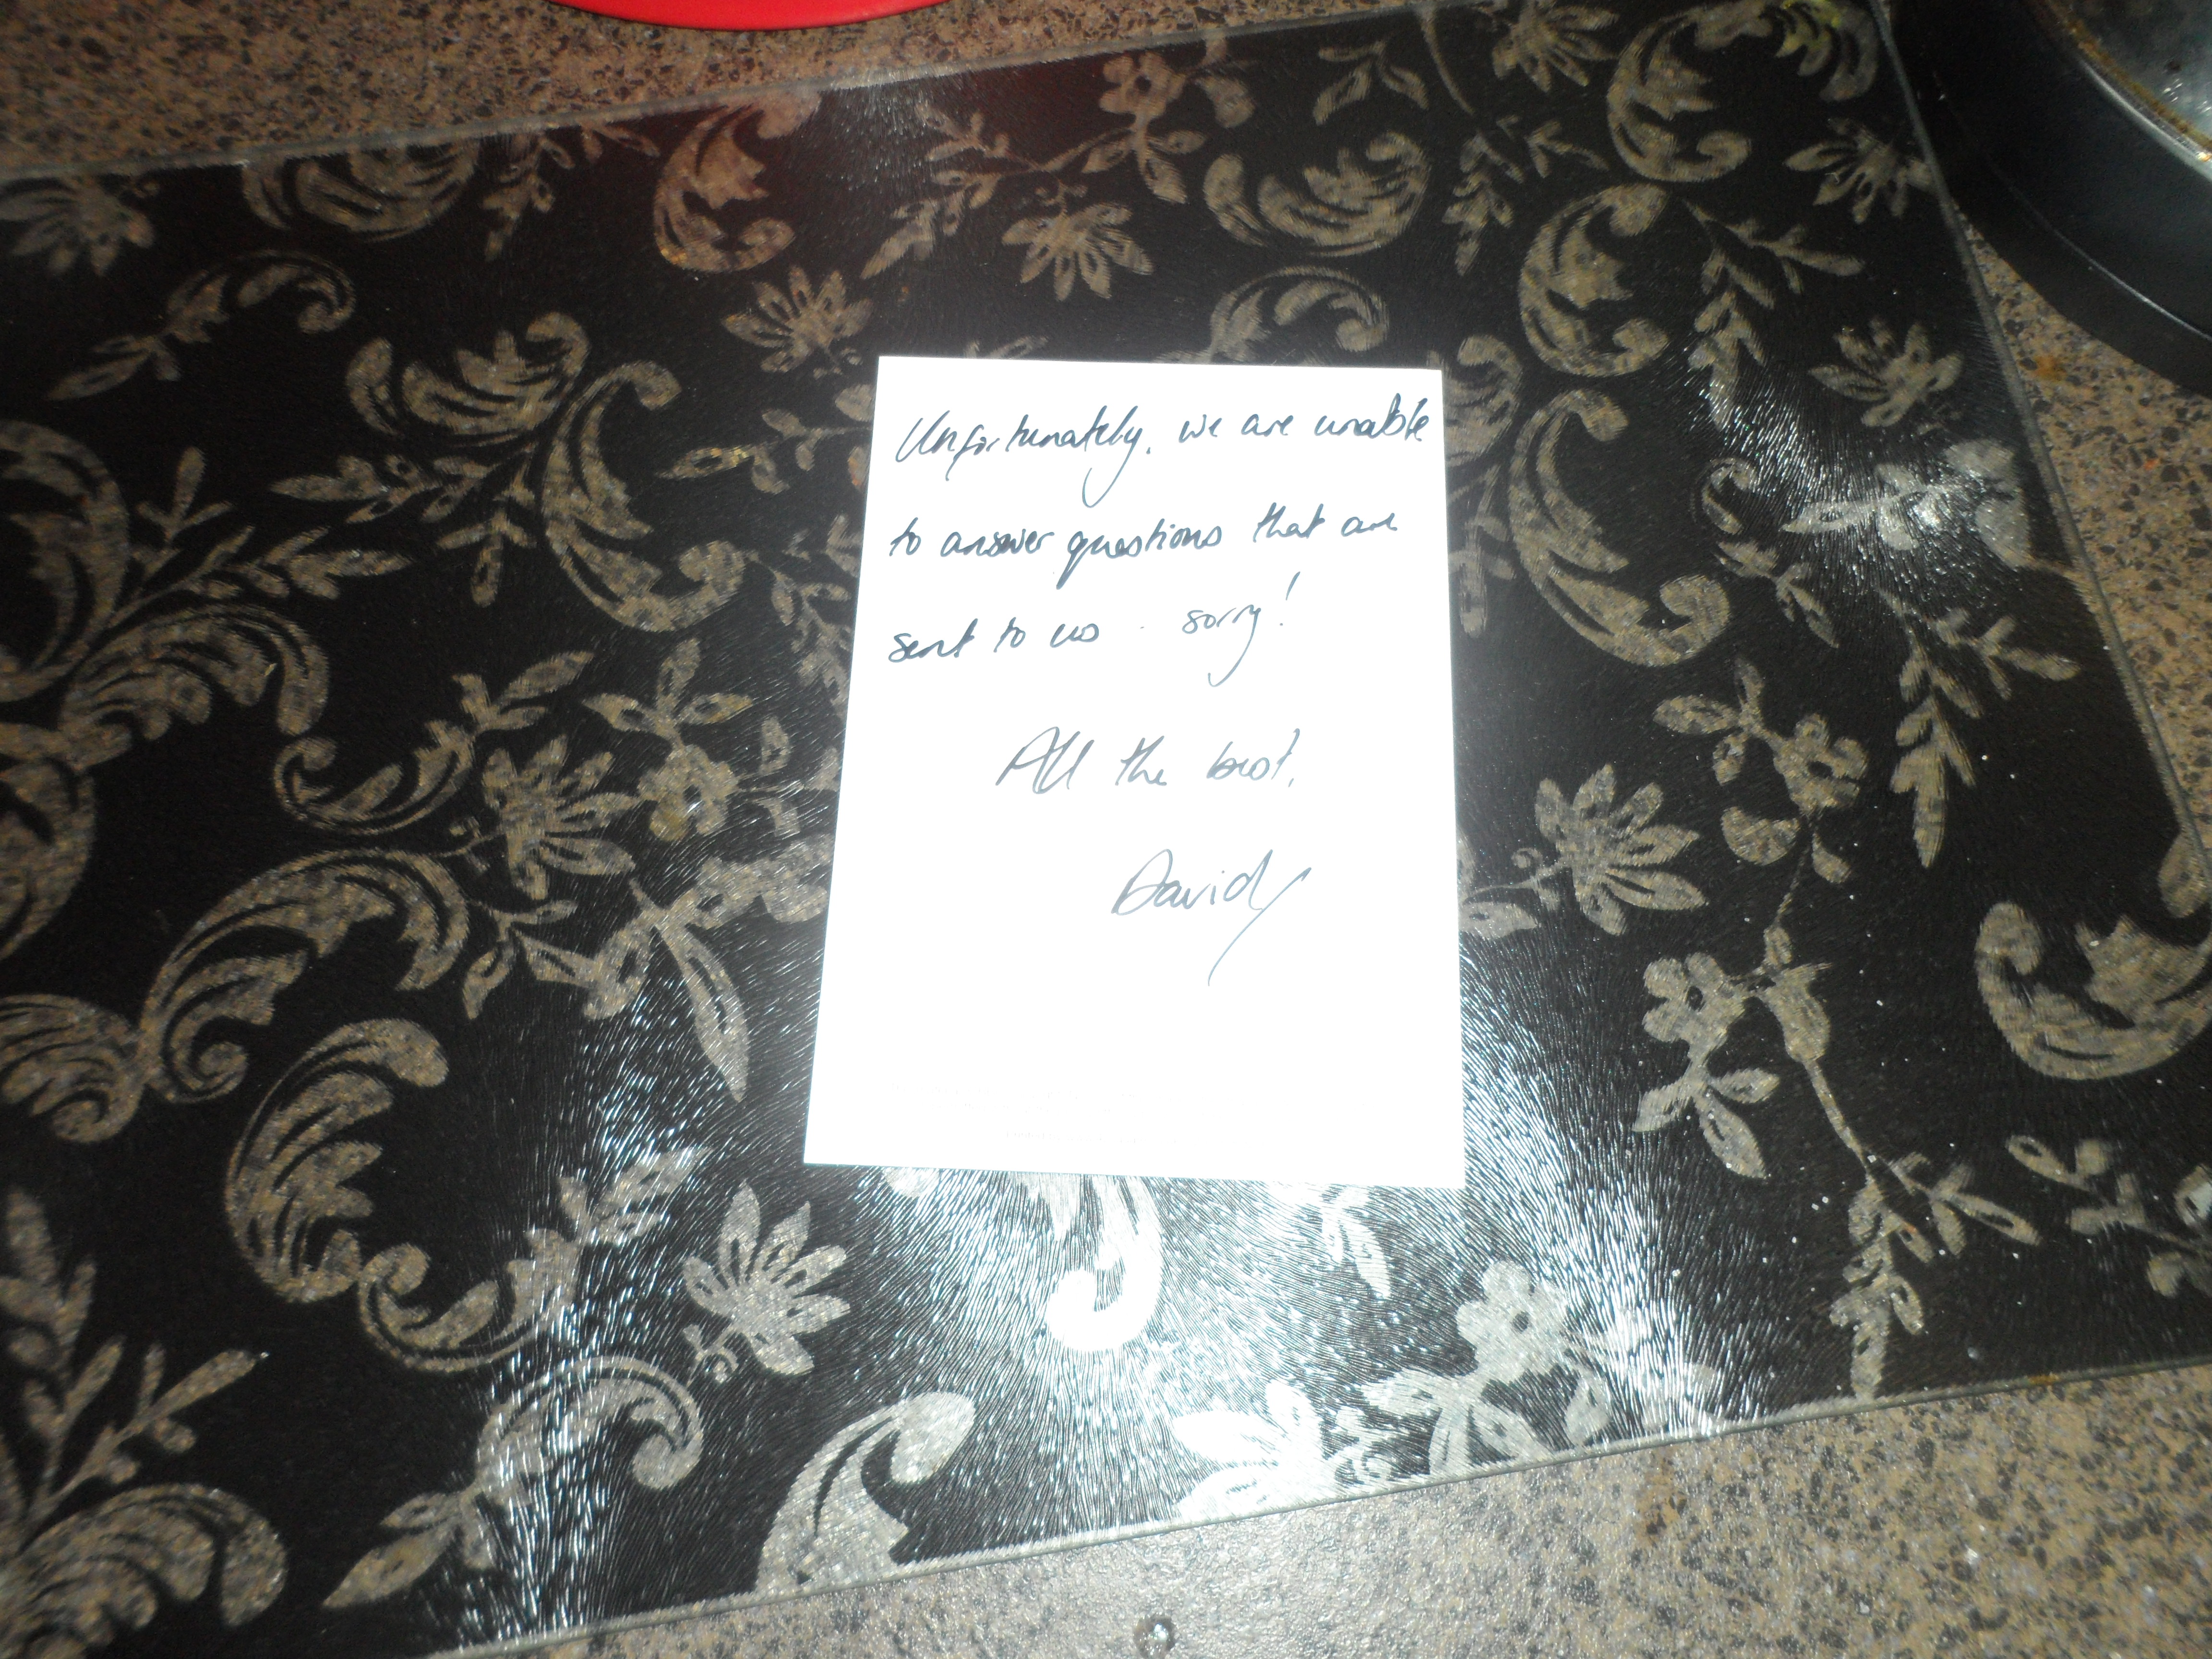 Unfortunately, we are unable
to answer questions that are
sent to us - sorry!
All the best,
David